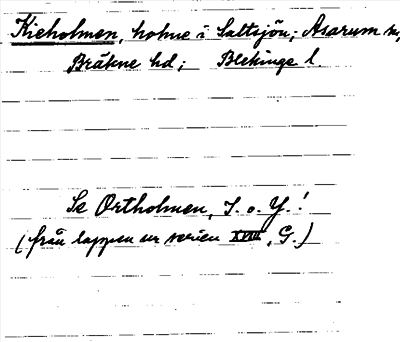 Kieholmen, holme i Saltsjön; Asarum sn,
Bräkne hd; Blekinge l.
Se Ortholmen, S. o. Y.!
(från lappen ur serien XVIII, G.)